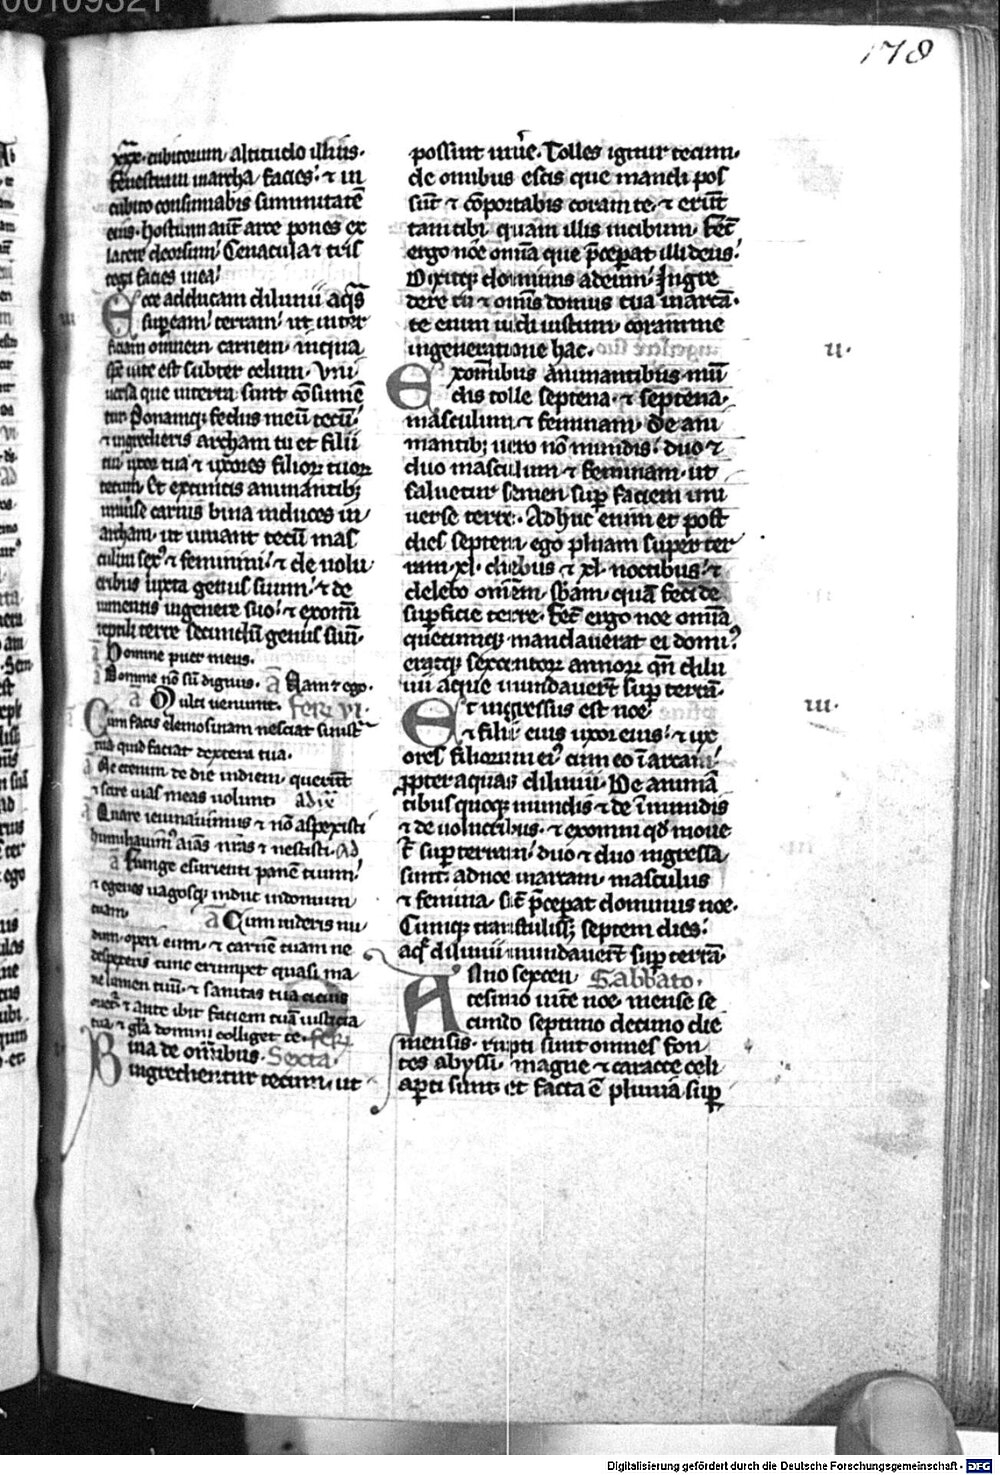 00109321
178
xxx. cubitorum altitudo illius.
fenestram in archa facies. ⁊ in
cubito consumabis summitatē
eius. hostium aūt arce pones ex
latere deorsum. Cenacula ⁊ tris
tega facies in ea.
iii
Ecce adducam diluuii aq̄s
sup̄ terram. ut inter
ficiam omnem carnem. in qua
sp̄c uite est subter celum. Vni
uersa que in terra sunt cōsumē
tur. Ponamq; fedus meū tecū.
⁊ ingredieris archam tu et filii
tui. uxor tua ⁊ uxores filioꝝ tuoꝝ
tecum. Et ex cunctis animantib;
uniuse carnis bina induces in
archam. ut uiuant tecū mas
culini sexꝰ ⁊ feminini. ⁊ de uolu
cribus iuxta genus suum. ⁊ de
iumentis in genere suo. ⁊ ex omī
reptili terre secundū genus suū.
ā Domine puer meus.
ā Domine nō sū dignus. ā Nam ⁊ ego.
ā Multi uenient. ferꝭ VI.
Cum facis elemosinam nesciat sinist̄
tua quid faciat dextera tua.
ā Me etenim de die in diem querūt
⁊ scire uias meas uolunt.
ā Quare ieiunauimus ⁊ nō aspexisti
humiliauimꝰ aīas nr̄as ⁊ nescisti. Ad
ā Frange esurienti panē tuum.
⁊ egenos uagosq; induc in domum
tuam. ā Cum uideris nu
dum. operi eum. ⁊ carnē tuam ne
despexeris tunc erumpet quasi ma
ne lumen tuū. ⁊ sanitas tua cicius
oriet̄ ⁊ ante ibit faciem tuā iusticia
tua ⁊ gl̄a domini colliget te. ferꝭ
Bina de om̄ibus. Sexta.
ingredientur tecum. ut
possint uiue͛. Tolles igitur tecum.
de omibus escis que mandi pos
sūt ⁊ cōportabis coram te. ⁊ erūt
tam tibi quam illis in cibum. Fec̄
ergo nōe omīa que p̄cepat illi deus.
Dixitq; dominus ad eum. Ingre
dere tu ⁊ omīs domus tua in arcā.
te enim uidi iustum. coram me
in generatione hac.
ii.
Ex omibus animantibus mū
dis tolle septena. ⁊ septena.
masculum ⁊ feminam. De ani
mantib; uero nō mundis. duo ⁊
duo masculum ⁊ feminam. ut
saluetur semen sup̄ faciem uni
uerse terre. Adhuc enim et post
dies septem. ego pluam super ter
ram. xl. diebus ⁊ xl. noctibus. ⁊
delebo omēm sb̄am. quā feci de
sup̄ficie terre. Fec̄ ergo noe omīa
quecumq; mandauerat ei domīꝰ
eratq; sexcentoꝝ annoꝝ qn̄ dilu
uii aque inundauer̄t sup̄ terrā.
iii.
Et ingressus est noe
⁊ filii eius uxor eius. ⁊ ux
ores filiorum eiꝰ cum eo ī arcam.
ꝓpter aquas diluuii. De animā
tibus quoq; mundis ⁊ de īmundis
⁊ de uolucribus. ⁊ ex omni qd̄ moue
t̄ sup̄ terram. duo ⁊ duo ingressa
sunt ad noe in arcam. masculus
⁊ femina. sic̄ p̄cepat dominus noe.
Cumq; transissent septem dies.
aq̄ diluuii inundauer̄t sup̄ terrā.
Anno sexcen Sabbato.
tesimo uite noe. mense se
cundo septimo decimo die
mensis. rupti sunt omnes fon
tes abyssi magne ⁊ caracte celi
ap̄ti sunt et facta ē pluuia sup̄
Digitalisierung gefördert durch die Deutsche Forschungsgemeinschaft - DFG